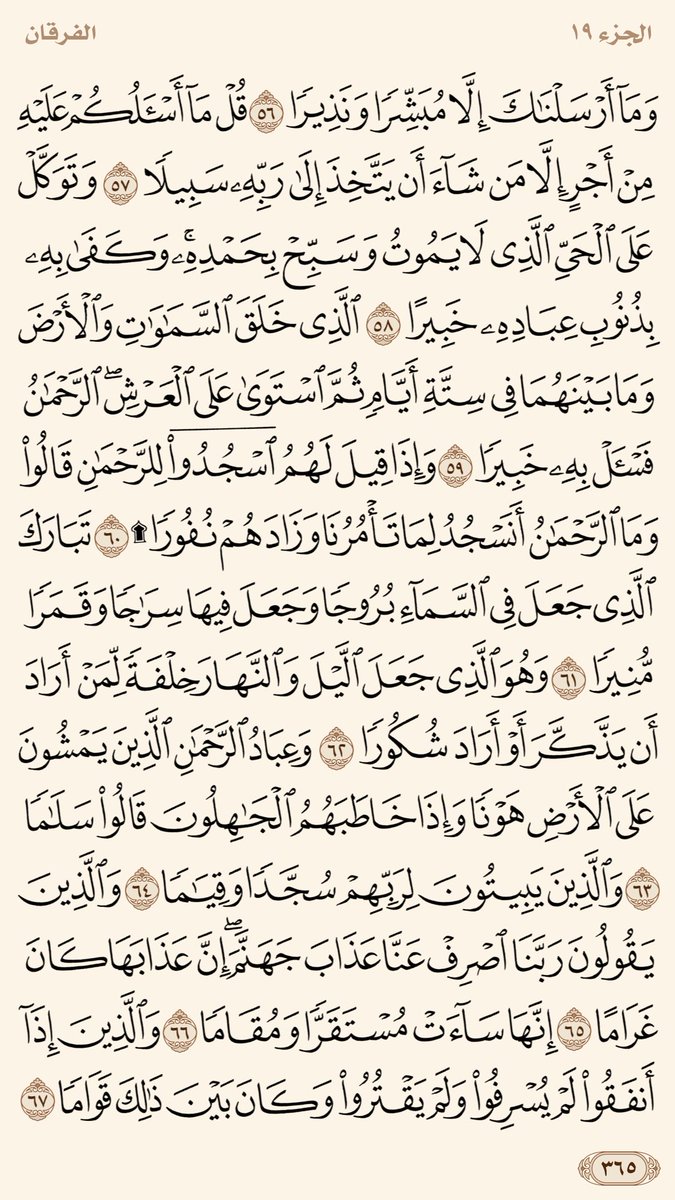 الجزء ١٩ الفرقان
وَمَآ أَرۡسَلۡنَٰكَ إِلَّا مُبَشِّرٗا وَنَذِيرٗا ٥٦ قُلۡ مَآ أَسۡـَٔلُكُمۡ عَلَيۡهِ
مِنۡ أَجۡرٍ إِلَّا مَن شَآءَ أَن يَتَّخِذَ إِلَىٰ رَبِّهِۦ سَبِيلٗا ٥٧ وَتَوَكَّلۡ
عَلَى ٱلۡحَيِّ ٱلَّذِي لَا يَمُوتُ وَسَبِّحۡ بِحَمۡدِهِۦۚ وَكَفَىٰ بِهِۦ
بِذُنُوبِ عِبَادِهِۦ خَبِيرًا ٥٨ ٱلَّذِي خَلَقَ ٱلسَّمَٰوَٰتِ وَٱلۡأَرۡضَ
وَمَا بَيۡنَهُمَا فِي سِتَّةِ أَيَّامٖ ثُمَّ ٱسۡتَوَىٰ عَلَى ٱلۡعَرۡشِۖ ٱلرَّحۡمَٰنُ
فَسۡـَٔلۡ بِهِۦ خَبِيرٗا ٥٩ وَإِذَا قِيلَ لَهُمُ ٱسۡجُدُواْۤ لِلرَّحۡمَٰنِ قَالُواْ
وَمَا ٱلرَّحۡمَٰنُ أَنَسۡجُدُ لِمَا تَأۡمُرُنَا وَزَادَهُمۡ نُفُورٗا ۩ ٦٠ تَبَارَكَ
ٱلَّذِي جَعَلَ فِي ٱلسَّمَآءِ بُرُوجٗا وَجَعَلَ فِيهَا سِرَٰجٗا وَقَمَرٗا
مُّنِيرٗا ٦١ وَهُوَ ٱلَّذِي جَعَلَ ٱلَّيۡلَ وَٱلنَّهَارَ خِلۡفَةٗ لِّمَنۡ أَرَادَ
أَن يَذَّكَّرَ أَوۡ أَرَادَ شُكُورٗا ٦٢ وَعِبَادُ ٱلرَّحۡمَٰنِ ٱلَّذِينَ يَمۡشُونَ
عَلَى ٱلۡأَرۡضِ هَوۡنٗا وَإِذَا خَاطَبَهُمُ ٱلۡجَٰهِلُونَ قَالُواْ سَلَٰمٗا
٦٣ وَٱلَّذِينَ يَبِيتُونَ لِرَبِّهِمۡ سُجَّدٗا وَقِيَٰمٗا ٦٤ وَٱلَّذِينَ
يَقُولُونَ رَبَّنَا ٱصۡرِفۡ عَنَّا عَذَابَ جَهَنَّمَۖ إِنَّ عَذَابَهَا كَانَ
غَرَامًا ٦٥ إِنَّهَا سَآءَتۡ مُسۡتَقَرّٗا وَمُقَامٗا ٦٦ وَٱلَّذِينَ إِذَآ
أَنفَقُواْ لَمۡ يُسۡرِفُواْ وَلَمۡ يَقۡتُرُواْ وَكَانَ بَيۡنَ ذَٰلِكَ قَوَامٗا ٦٧
٣٦٥